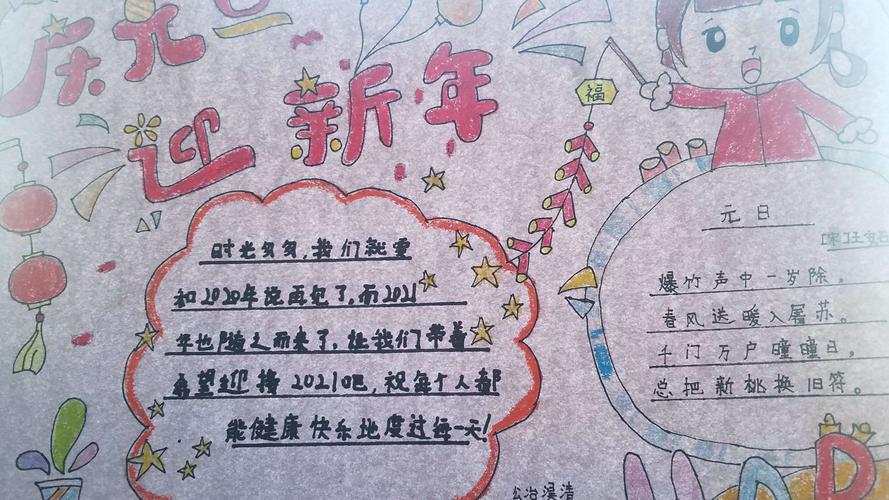 庆元旦
迎新年
福
时光匆匆,我们就要
和2020年说再见了,而2021
年也随之而来了,让我们带着
希望迎接2021吧,祝每个人都
能健康快乐地度过每一天!
元日
[宋]王安石
爆竹声中一岁除。
春风送暖入屠苏。
千门万户曈曈日,
总把新桃换旧符。